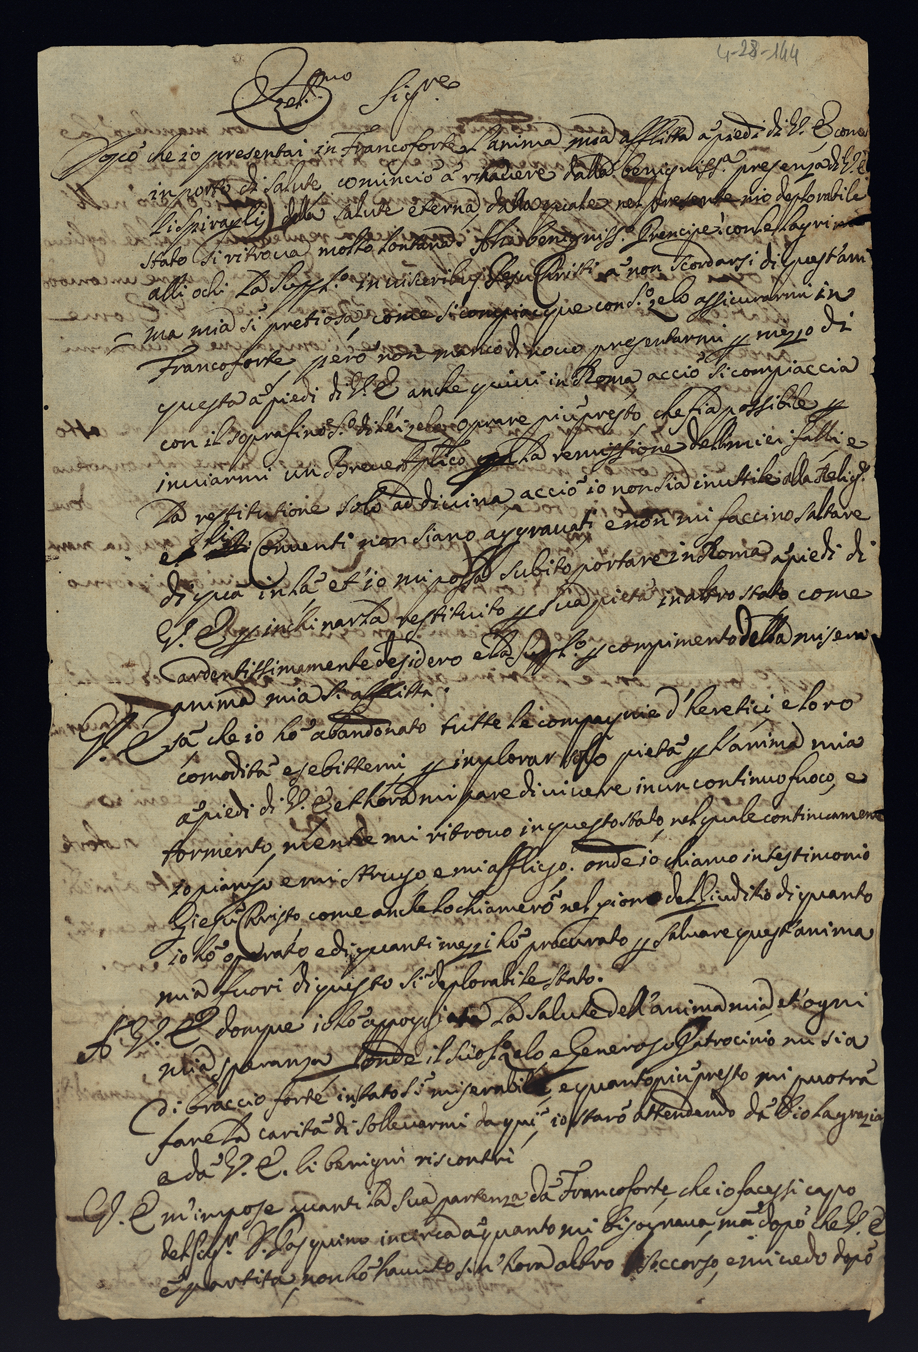 4-28-144
Ecell.mo Sig.re
Dopò che io presentai in Francoforte l'anima mia afflitta a piedi di V. E. come
in porto di salute cominciò a rihavere dalla benigniss.a presenza di V. E.
li spiragli della salute eterna dalla quale nel presente mio deplorabile
stato si ritrova molto lontana. Altro benigniss.o Prencipe, con le lagrime
alli ochi la supp.co in visceribus Jesu Christi à non scordarsi di quest'ani
= ma mia sì pretiosa come si compiacque con S.o zelo assicurarmi in
Francoforte, però non manco di novo presentarmi p mezzo di
questa à piedi di V. E. anche quivi in Roma acciò si compiaccia
con il soprafino S.o di lei zelo oprare più presto, che sia possibile p
inviarmi un Breve Apl.ico p la remissione delli miei falli, e
la restitutione solo ad divina, acciò io non sia inutile alla Relig.e
e li Conventi non siano aggravati e non mi faccino saltare
di quà in là et io mi possa subito portare in Roma à piedi di
V. E. p inchinarla restituito p sua pietà in altro stato come
ardentissimamente desidero e la supp.co p compimento della misera
anima mia sì afflitta.
V. E. sà che io hò abandonato tutte le compagnie d'heretici, e loro
comodità esebittemi, p implorar solo pietà p l'anima mia
à piedi di V. E. et hora mi pare di vivere in un continuo fuoco, e
tormento, mentre mi ritrovo in questo stato, nel quale continuamente
io piango e mi strugo e mi affligo. onde io chiamo in testimonio
Giesù Christo, come anche lo chiamerò nel giorno del Giuditio di quanto
io hò operato e di quanti mezzi hò procurato p salvare quest'anima
mia fuori di questo sì deplorabile stato.
A V. E. donque io hò appoggiata la salute dell'anima mia et ogni
mia speranza onde il suo S.o zelo e Generoso Patrocinio mi sia
di braccio forte in stato sì miserabile, e quanto più presto mi puotrà
fare la carità di sollevarmi da qui, io starò attendendo da Dio la grazia
e da V. E. li benigni riscontri
V. E. m'impose avanti la sua partenza da Francoforte, che io facessi capo
del Sig.r D. Pasquino in circa à quanto mi bisognava, mà dopò che V. E.
è partita, non hò havuto sin'hora altro soccorso, e mi vedo dopò